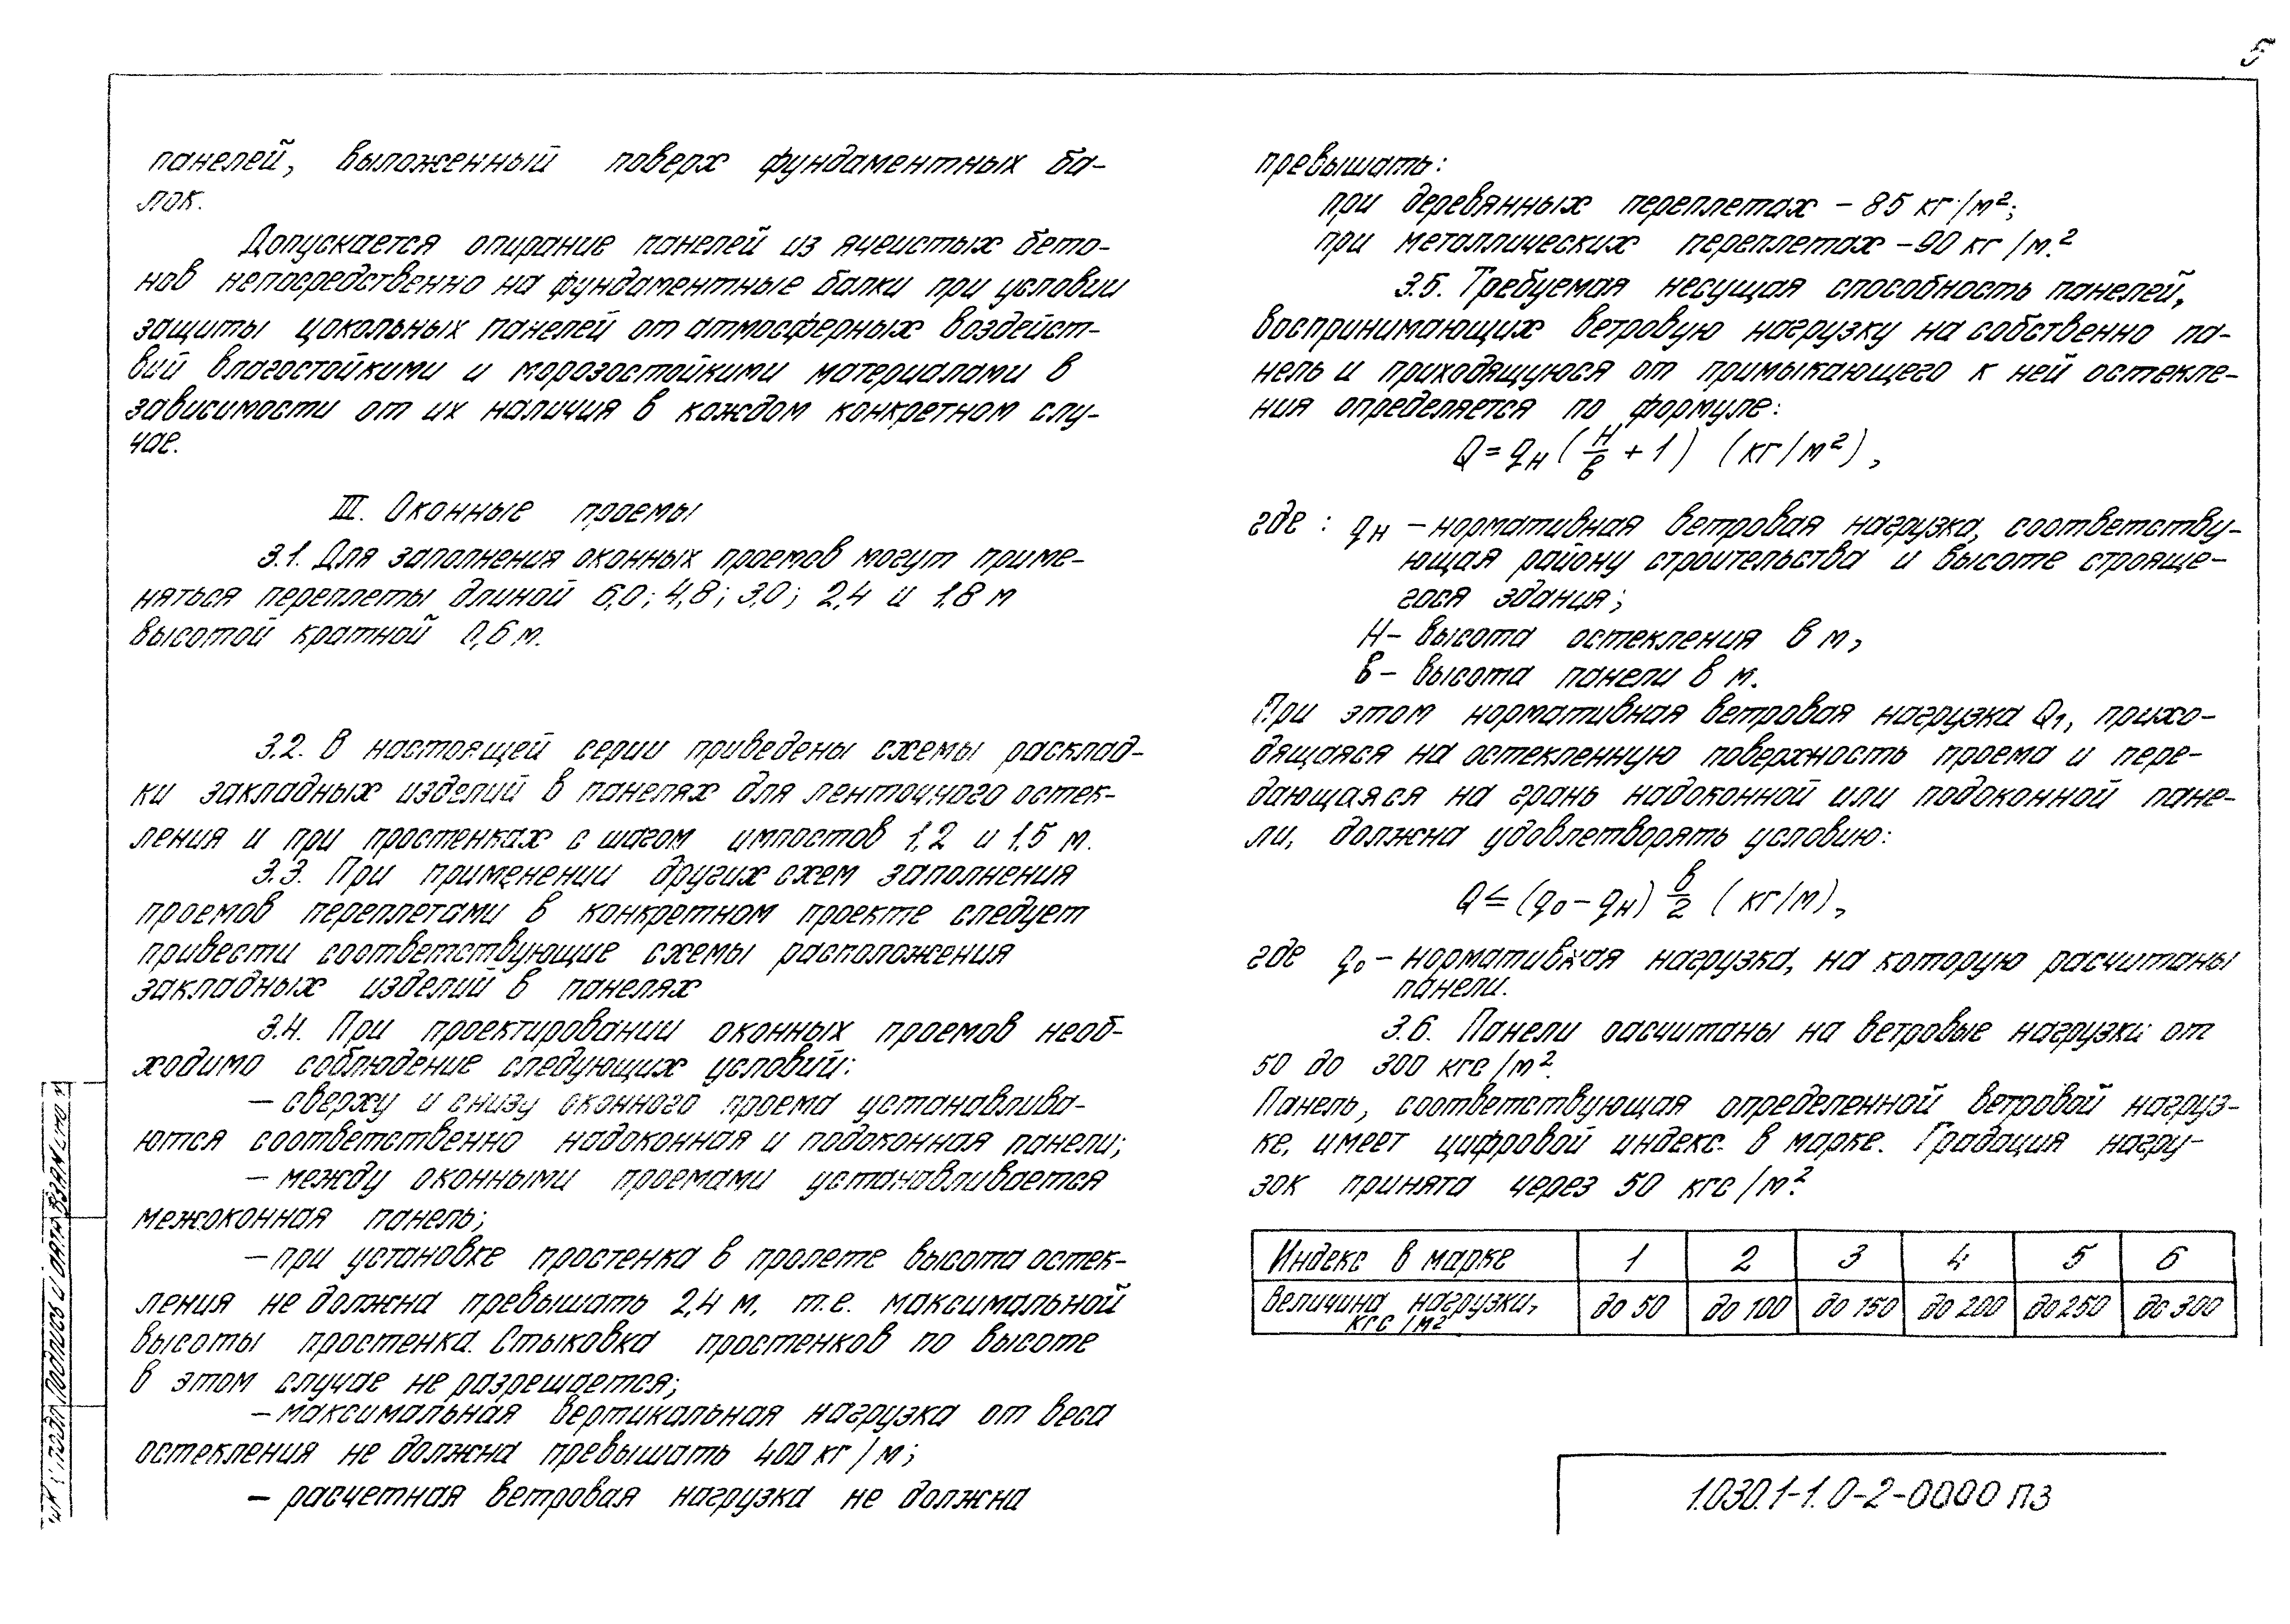 5
панелей, выложенный поверх фундаментных ба-
лок.
Допускается опирание панелей из ячеистых бето-
нов непосредственно на фундаментные балки при условии
защиты цокольных панелей от атмосферных воздейст-
вий влагостойкими и морозостойкими материалами в
зависимости от их наличия в каждом конкретном слу-
чае.
III. Оконные проемы
3.1. Для заполнения оконных проемов могут приме-
няться переплеты длиной 6,0; 4,8; 3,0; 2,4 и 1,8 м
высотой кратной 0,6 м.
3.2. В настоящей серии приведены схемы расклад-
ки закладных изделий в панелях для ленточного остек-
ления и при простенках с шагом импостов 1,2 и 1,5 м.
3.3. При применении других схем заполнения
проемов переплетами в конкретном проекте следует
привести соответствующие схемы расположения
закладных изделий в панелях
3.4. При проектировании оконных проемов необ-
ходимо соблюдение следующих условий:
— сверху и снизу оконного проема устанавлива-
ются соответственно надоконная и подоконная панели;
— между оконными проемами устанавливается
межоконная панель;
— при установке простенка в пролете высота остек-
ления не должна превышать 2,4 м, т.е. максимальной
высоты простенка. Стыковка простенков по высоте
в этом случае не разрешается;
— максимальная вертикальная нагрузка от веса
остекления не должна превышать 400 кг/м;
— расчетная ветровая нагрузка не должна
превышать:
при деревянных переплетах – 85 кг/м²;
при металлических переплетах – 90 кг/м².
3.5. Требуемая несущая способность панелей,
воспринимающих ветровую нагрузку на собственно па-
нель и приходящуюся от примыкающего к ней остекле-
ния определяется по формуле:
Q = qн (H/в + 1) (кг/м²),
где: qн – нормативная ветровая нагрузка, соответству-
ющая району строительства и высоте строяще-
гося здания;
H – высота остекления в м,
в – высота панели в м.
При этом нормативная ветровая нагрузка Q₁, прихо-
дящаяся на остекленную поверхность проема и пере-
дающаяся на грань надоконной или подоконной пане-
ли, должна удовлетворять условию:
Q ≤ (q₀ – qн) в/2 (кг/м),
где q₀ – нормативная нагрузка, на которую расчитаны
панели.
3.6. Панели расчитаны на ветровые нагрузки от
50 до 300 кгс/м².
Панель, соответствующая определенной ветровой нагруз-
ке, имеет цифровой индекс в марке. Градация нагру-
зок принята через 50 кгс/м².
Индекс в марке 1 2 3 4 5 6
Величина нагрузки, кгс/м² до 50 до 100 до 150 до 200 до 250 до 300
1.030.1-1.0-2-0000 ПЗ
подпись и дата взам.